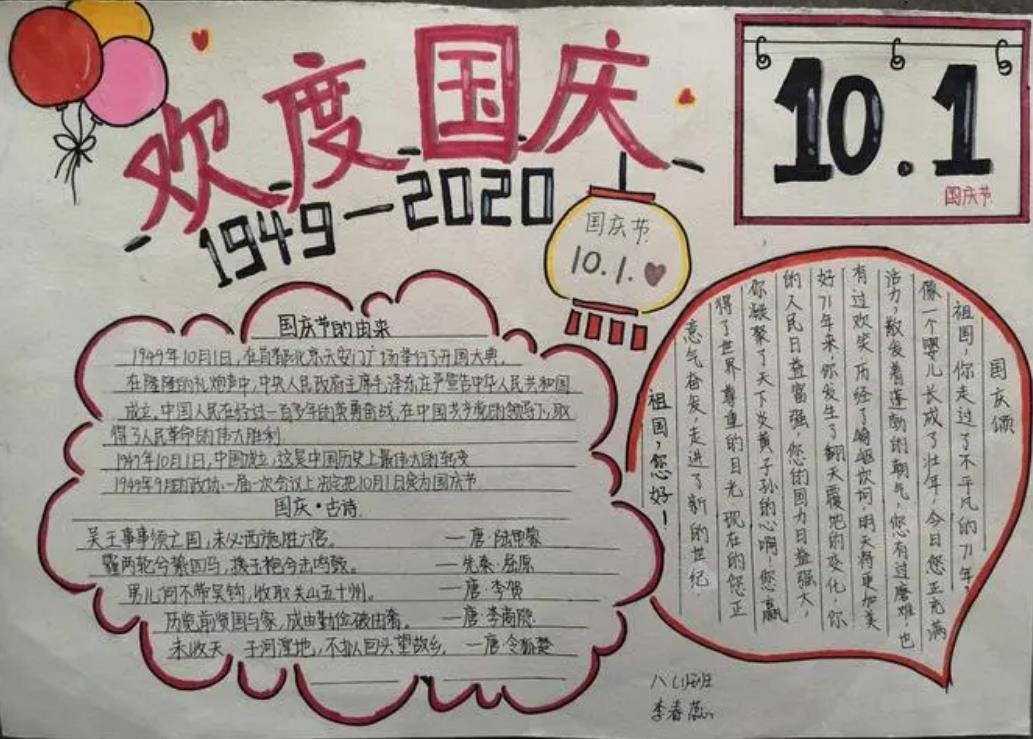 欢度国庆
1949—2020
10.1
国庆节
国庆节
10.1.
国庆节的由来
1949年10月1日,在首都北京天安门广场举行了开国大典,
在隆隆的礼炮声中,中央人民政府主席毛泽东庄严宣告中华人民共和国
成立,中国人民在经过一百多年的英勇奋战,在中国共产党的领导下,取
得了人民革命的伟大胜利
1949年10月1日,中国成立,这是中国历史上最伟大的转变
1949年9月的政协一届一次会议上决定把10月1日定为国庆节
国庆·古诗
吴王事事须亡国,未必西施胜六宫。 —唐·陆龟蒙
霾两轮兮絷四马,援玉枹兮击鸣鼓。 —先秦·屈原
男儿何不带吴钩,收取关山五十州。 —唐·李贺
历览前贤国与家,成由勤俭破由奢。 —唐·李商隐
未收天子河湟地,不拟回头望故乡。 —唐·令狐楚
国庆颂
祖国,你走过了不平凡的71年,
像一个婴儿长成了壮年,今日您正充满
活力,散发着蓬勃的朝气,您有过磨难,也
有过欢笑,历经了崎岖坎坷,明天将更加美
好71年来,你发生了翻天覆地的变化,你
的人民日益富强,您的国力日益强大,
你凝聚了天下炎黄子孙的心啊,您赢
得了世界尊重的目光,现在的您正
意气奋发,走进了新的世纪
祖国,您好!
八(1)班
李春蕊